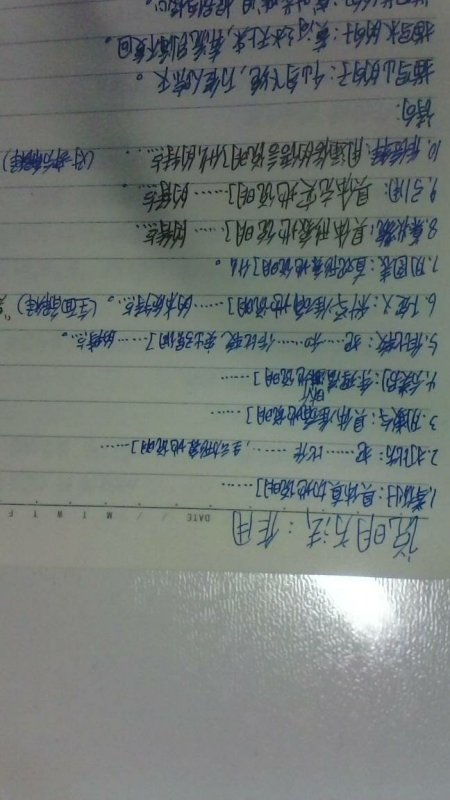 说明方法：作用
DATE / / M T W T F
1.举例子：具体真切地说明了……
2.打比方：把……比作……，生动形象地说明了……
3.列数字：具体准确地说明了……
4.分类别：条理清晰地说明了……
5.作比较：把……和……作比较，突出强调了……的特点。
6.下定义：科学准确地说明了……的本质特点。(全面解释)
7.列图表：直观形象地说明了什么。
8.摹状貌：具体形象地说明了……的特点
9.引用：具体充实地说明了……的特点
10.作诠释：用通俗的语言说明了什么的特点……(对一部分解释)
诗句：
描写山的句子：
描写水的句子：黄河之水天上来，奔流到海不复回。